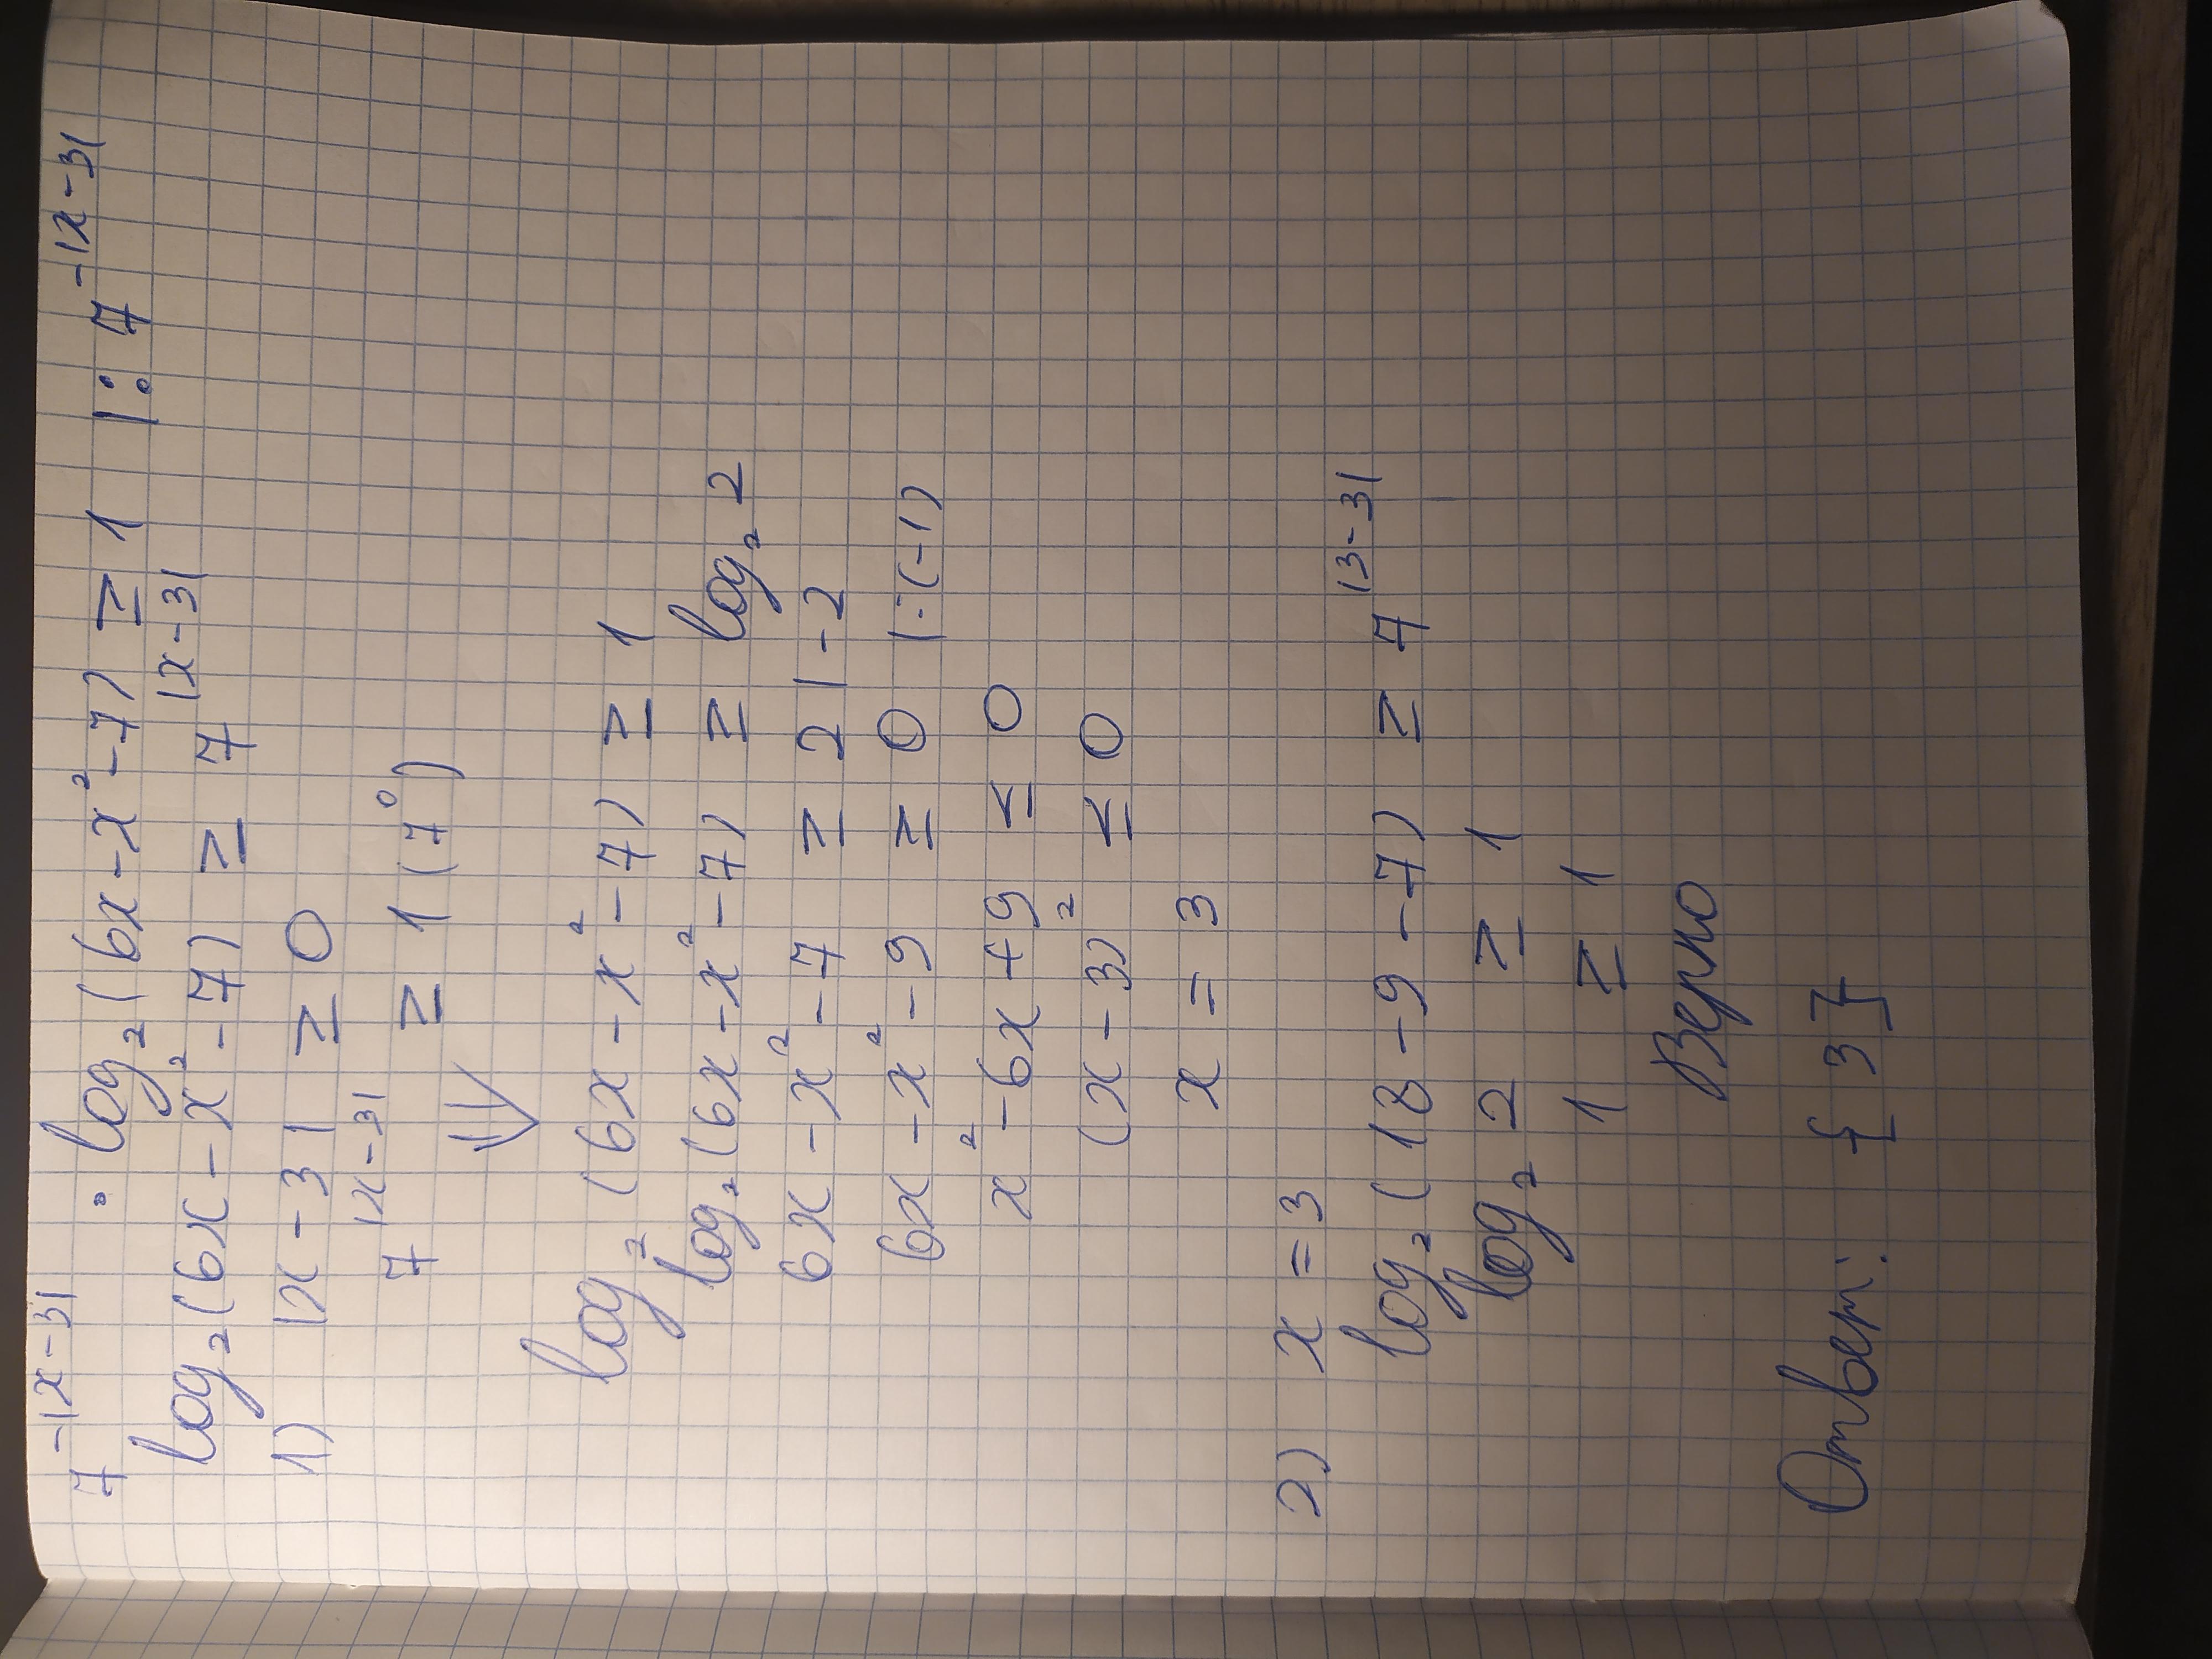 7^{-|x-3|} · log₂(6x-x²-7) ≥ 1 |: 7^{-|x-3|}
log₂(6x-x²-7) ≥ 7^{|x-3|}
1) |x-3| ≥ 0
7^{|x-3|} ≥ 1 (7⁰)
⇓
log₂(6x-x²-7) ≥ 1
log₂(6x-x²-7) ≥ log₂2
6x-x²-7 ≥ 2 |-2
6x-x²-9 ≥ 0 |:(-1)
x²-6x+9 ≤ 0
(x-3)² ≤ 0
x = 3
2) x = 3
log₂(18-9-7) ≥ 7^{|3-3|}
log₂2 ≥ 1
1 ≥ 1
Верно
Ответ: {3}